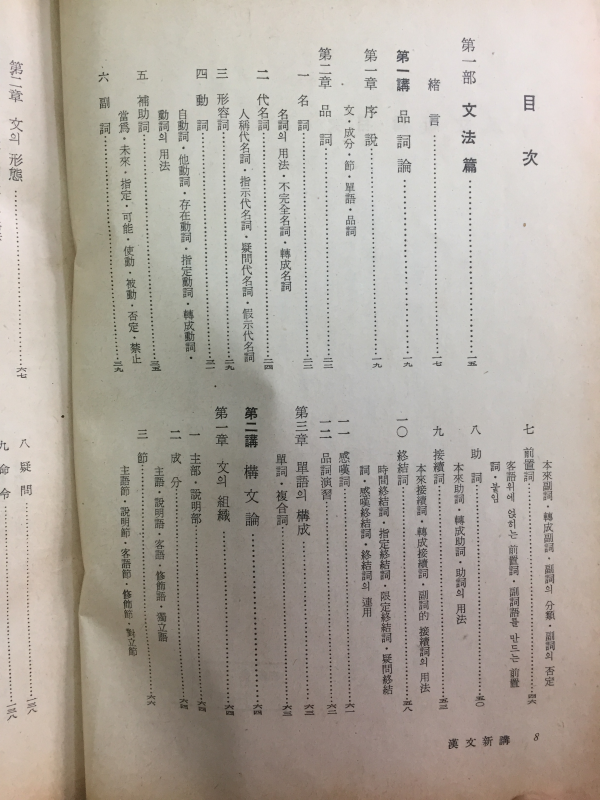 目次
第一部 文法篇 一五
緒言 一七
第一講 品詞論 一九
第一章 序說 一九
文·成分·節·單語·品詞
第二章 品詞 二二
一 名詞 二二
名詞의 用法·不完全名詞·轉成名詞
二 代名詞 二四
人稱代名詞·指示代名詞·疑問代名詞·假示代名詞
三 形容詞 二九
四 動詞 三一
自動詞·他動詞·存在動詞·指定動詞·轉成動詞·
動詞의 用法
五 補助詞 三五
當爲·未來·指定·可能·使動·被動·否定·禁止
六 副詞 三九
本來副詞·轉成副詞·副詞의 分類·副詞의 否定
七 前置詞 四六
客語위에 얹히는 前置詞·副詞語를 만드는 前置
詞·붙임
八 助詞 五〇
本來助詞·轉成助詞·助詞의 用法
九 接續詞 五三
本來接續詞·轉成接續詞·副詞的 接續詞의 用法
一〇 終結詞 五八
時間終結詞·指定終結詞·限定終結詞·疑問終結
詞·感嘆終結詞·終結詞의 連用
一一 感嘆詞 六一
一二 品詞演習 六二
第三章 單語의 構成 六三
單詞·複合詞
第二講 構文論 六四
第一章 文의 組織 六四
一 主部·說明部 六四
二 成分 六四
主語·說明語·客語·修飾語·獨立語
三 節 六六
主語節·說明節·客語節·修飾節·對立節
漢文新講 8
第二章 文의 形態 六七
八 疑問 一三八
九 命令 一三八